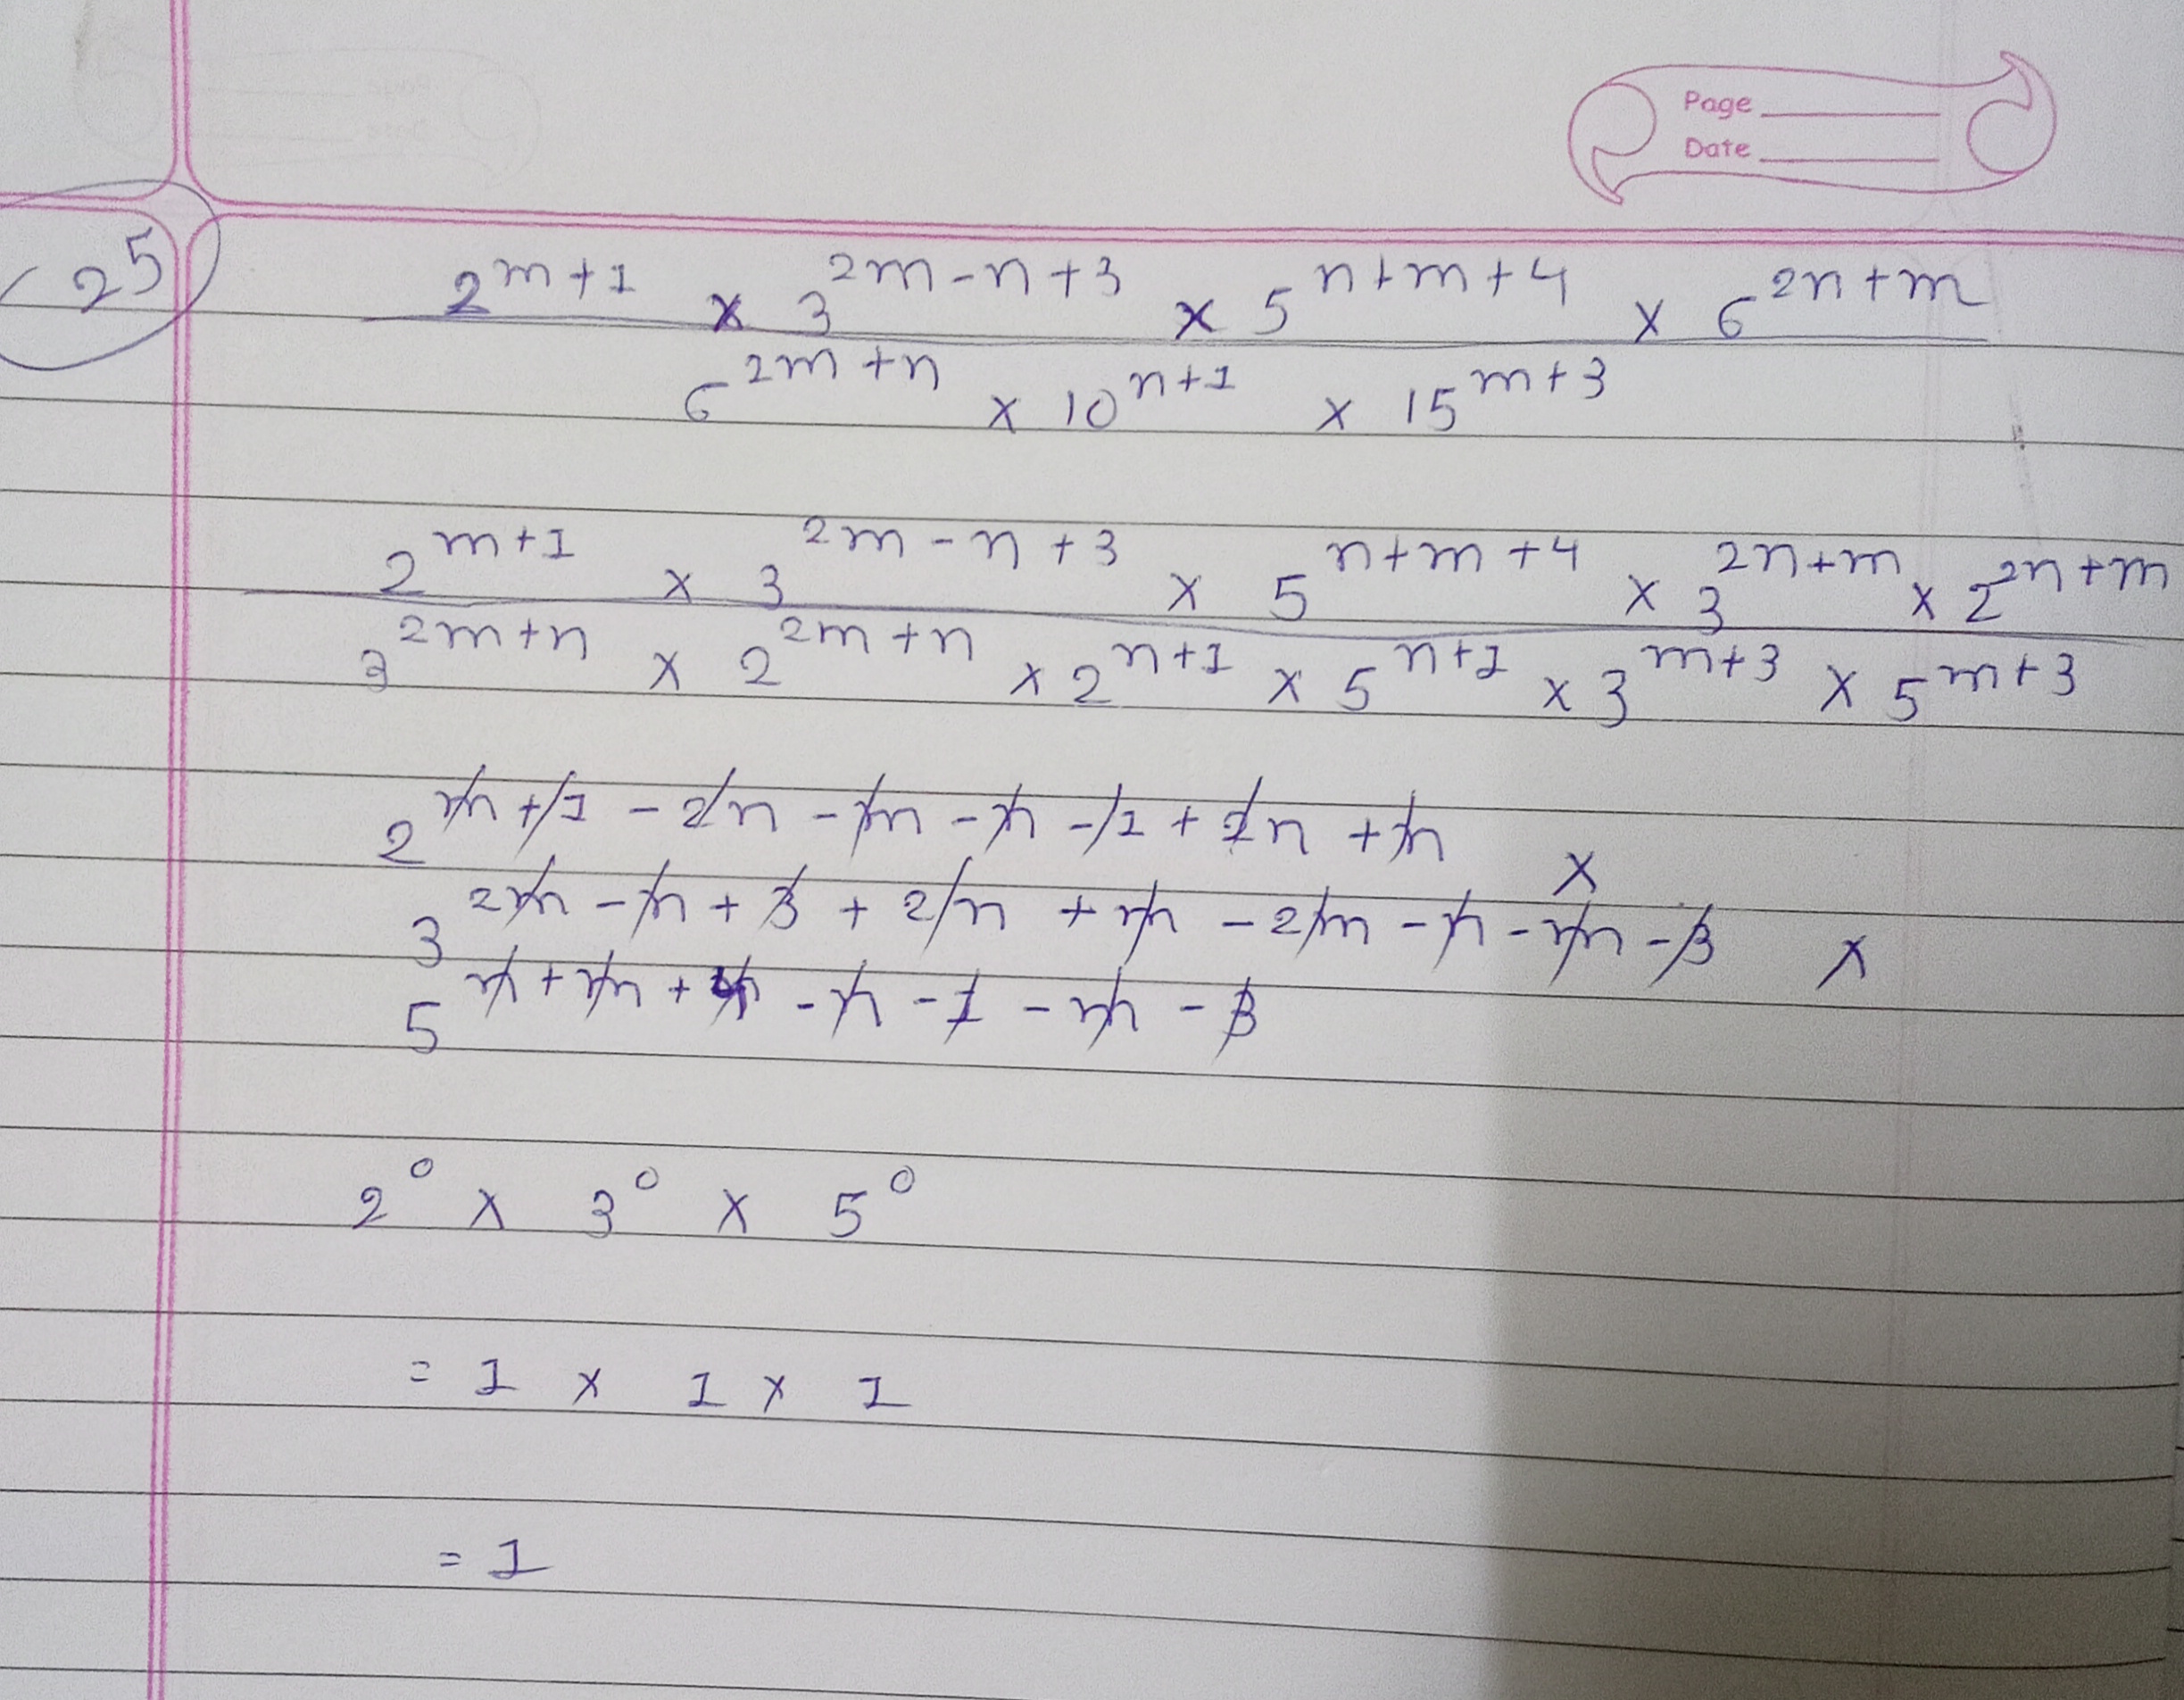 Page
Date
25
2^{m+1} × 3^{2m-n+3} × 5^{n+m+4} × 6^{2n+m}
6^{2m+n} × 10^{n+1} × 15^{m+3}
2^{m+1} × 3^{2m-n+3} × 5^{n+m+4} × 3^{2n+m} × 2^{2n+m}
3^{2m+n} × 2^{2m+n} × 2^{n+1} × 5^{n+1} × 3^{m+3} × 5^{m+3}
2^{m+1-2n-m-n-1+2n+n} ×
3^{2m-n+3+2n+m-2m-n-m-3} ×
5^{n+m+4-n-1-m-3}
2^0 × 3^0 × 5^0
= 1 × 1 × 1
= 1